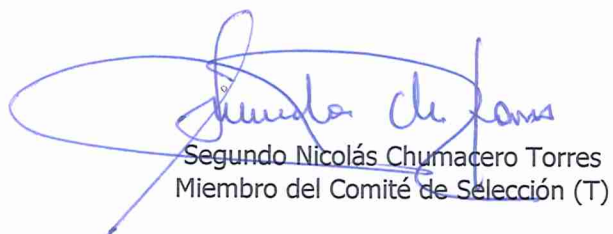 Segundo Nicolás Chumacero Torres
Miembro del Comité de Selección (T)